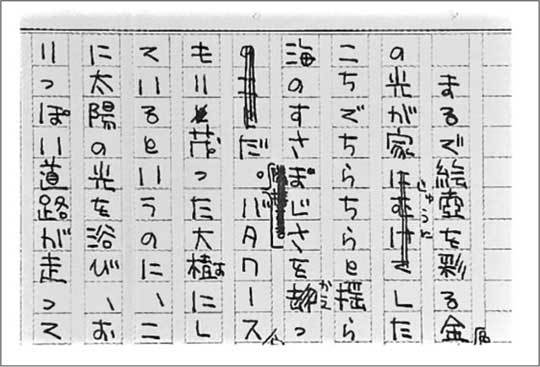 まるで絵壺を彩る金属
の光が家じゅうにした
こちでちらちらと揺ら
海のすさじさをっ
だ。バタワース
もり茂った大樹にし
ているというのに、こ
に太陽の光を浴び、お
りっぽい道路が走って